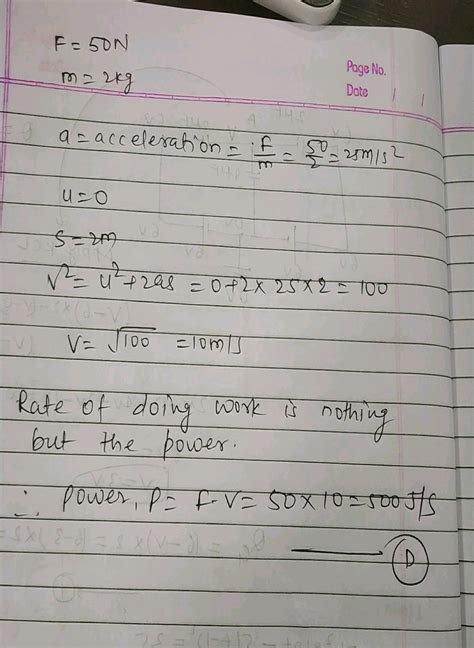 F = 50N
m = 2kg
Page No.
Date / /
a = acceleration = F/m = 50/2 = 25m/s²
u = 0
s = 2m
v² = u² + 2as = 0 + 2 × 25 × 2 = 100
V = √100 = 10m/s
Rate of doing work is nothing
but the power.
∴ Power, P = F V = 50 × 10 = 500 J/s
D